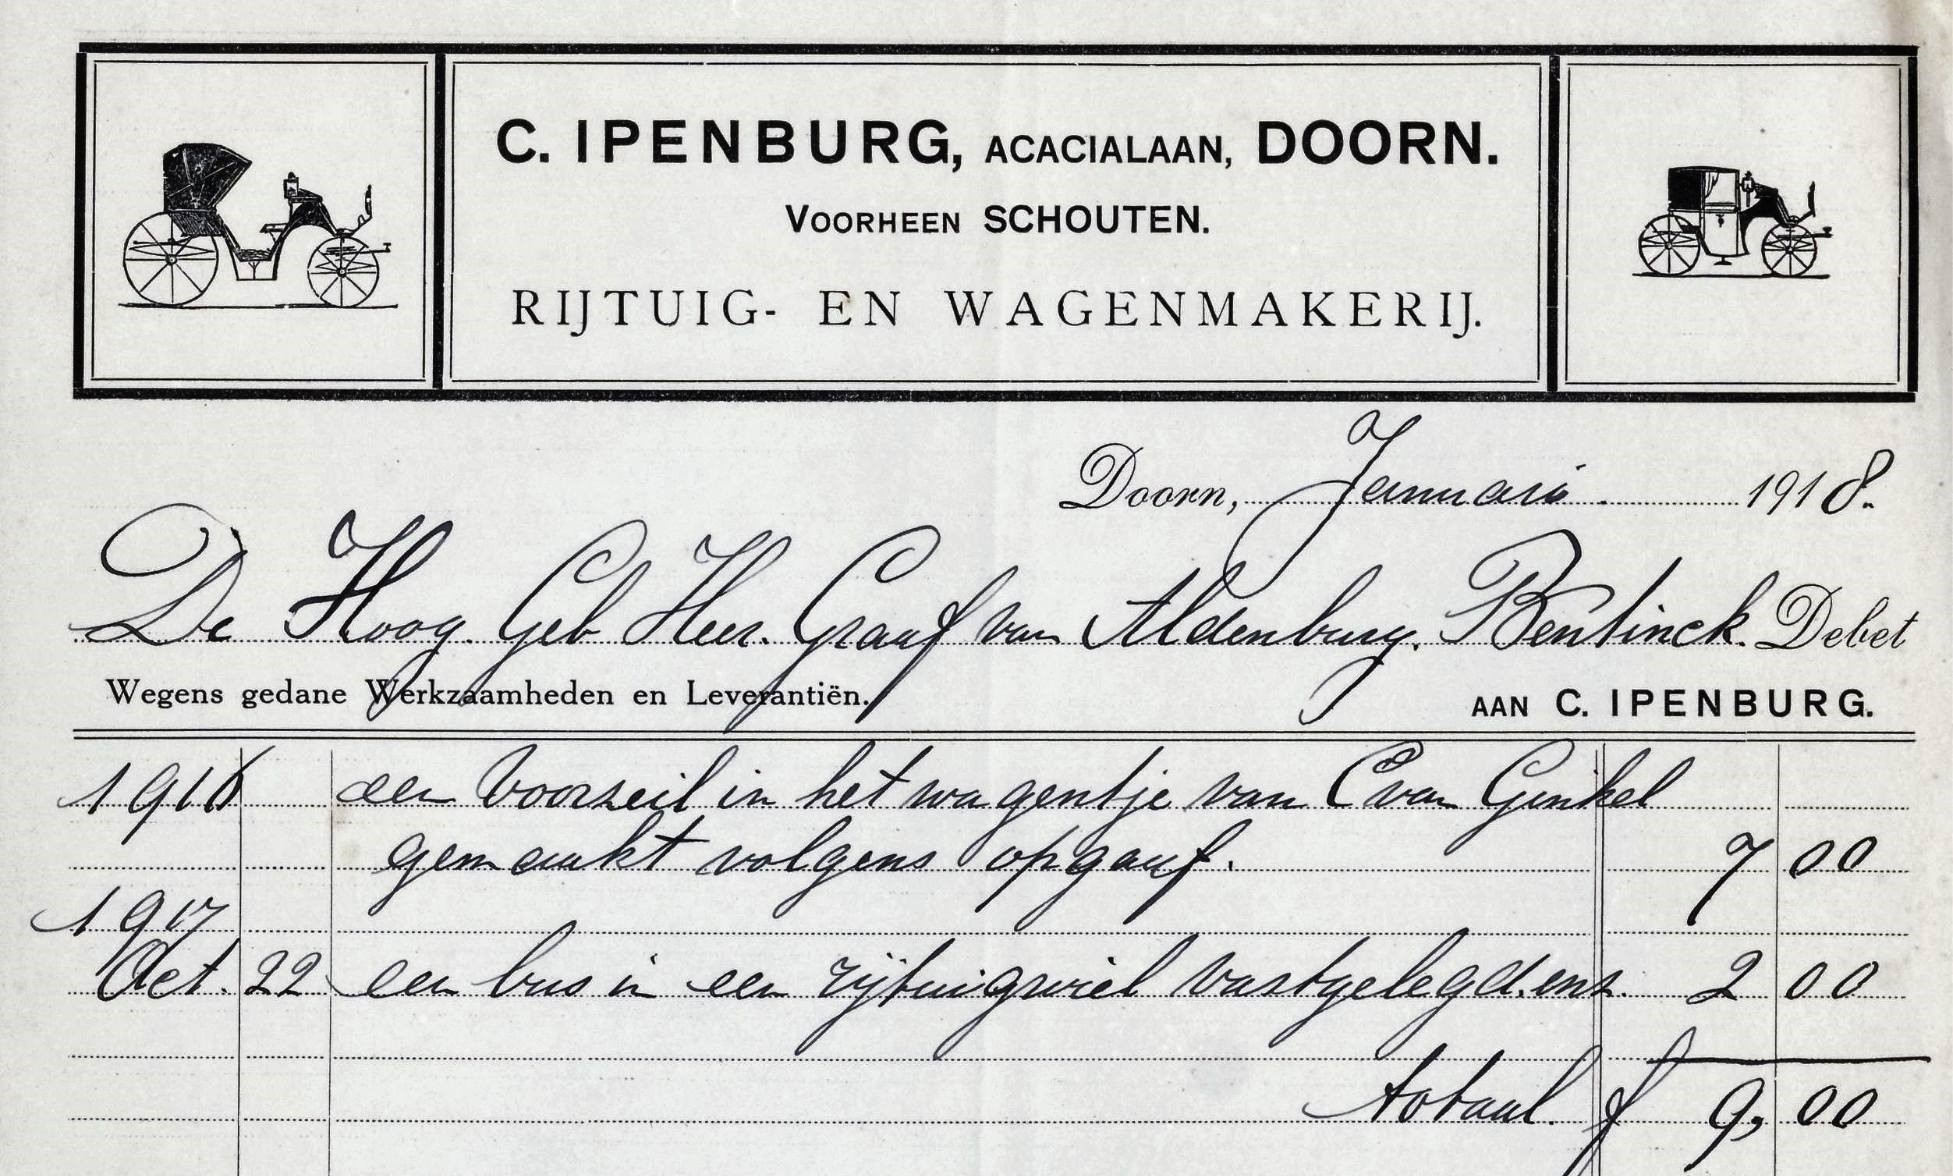 C. IPENBURG, ACACIALAAN, DOORN.
VOORHEEN SCHOUTEN.
RIJTUIG- EN WAGENMAKERIJ.
Doorn, Januari 1918.
De Hoog. Geb Heer. Graaf van Aldenburg. Bentinck. Debet
Wegens gedane Werkzaamheden en Leverantiën.
AAN C. IPENBURG.
1916 een voorzeil in het wagentje van C van Ginkel
gemaakt volgens opgaaf. 7 00
1917
Oct. 22 een bus in een rijtuigwiel vastgelegd. enz. 2 00
totaal. f 9, 00